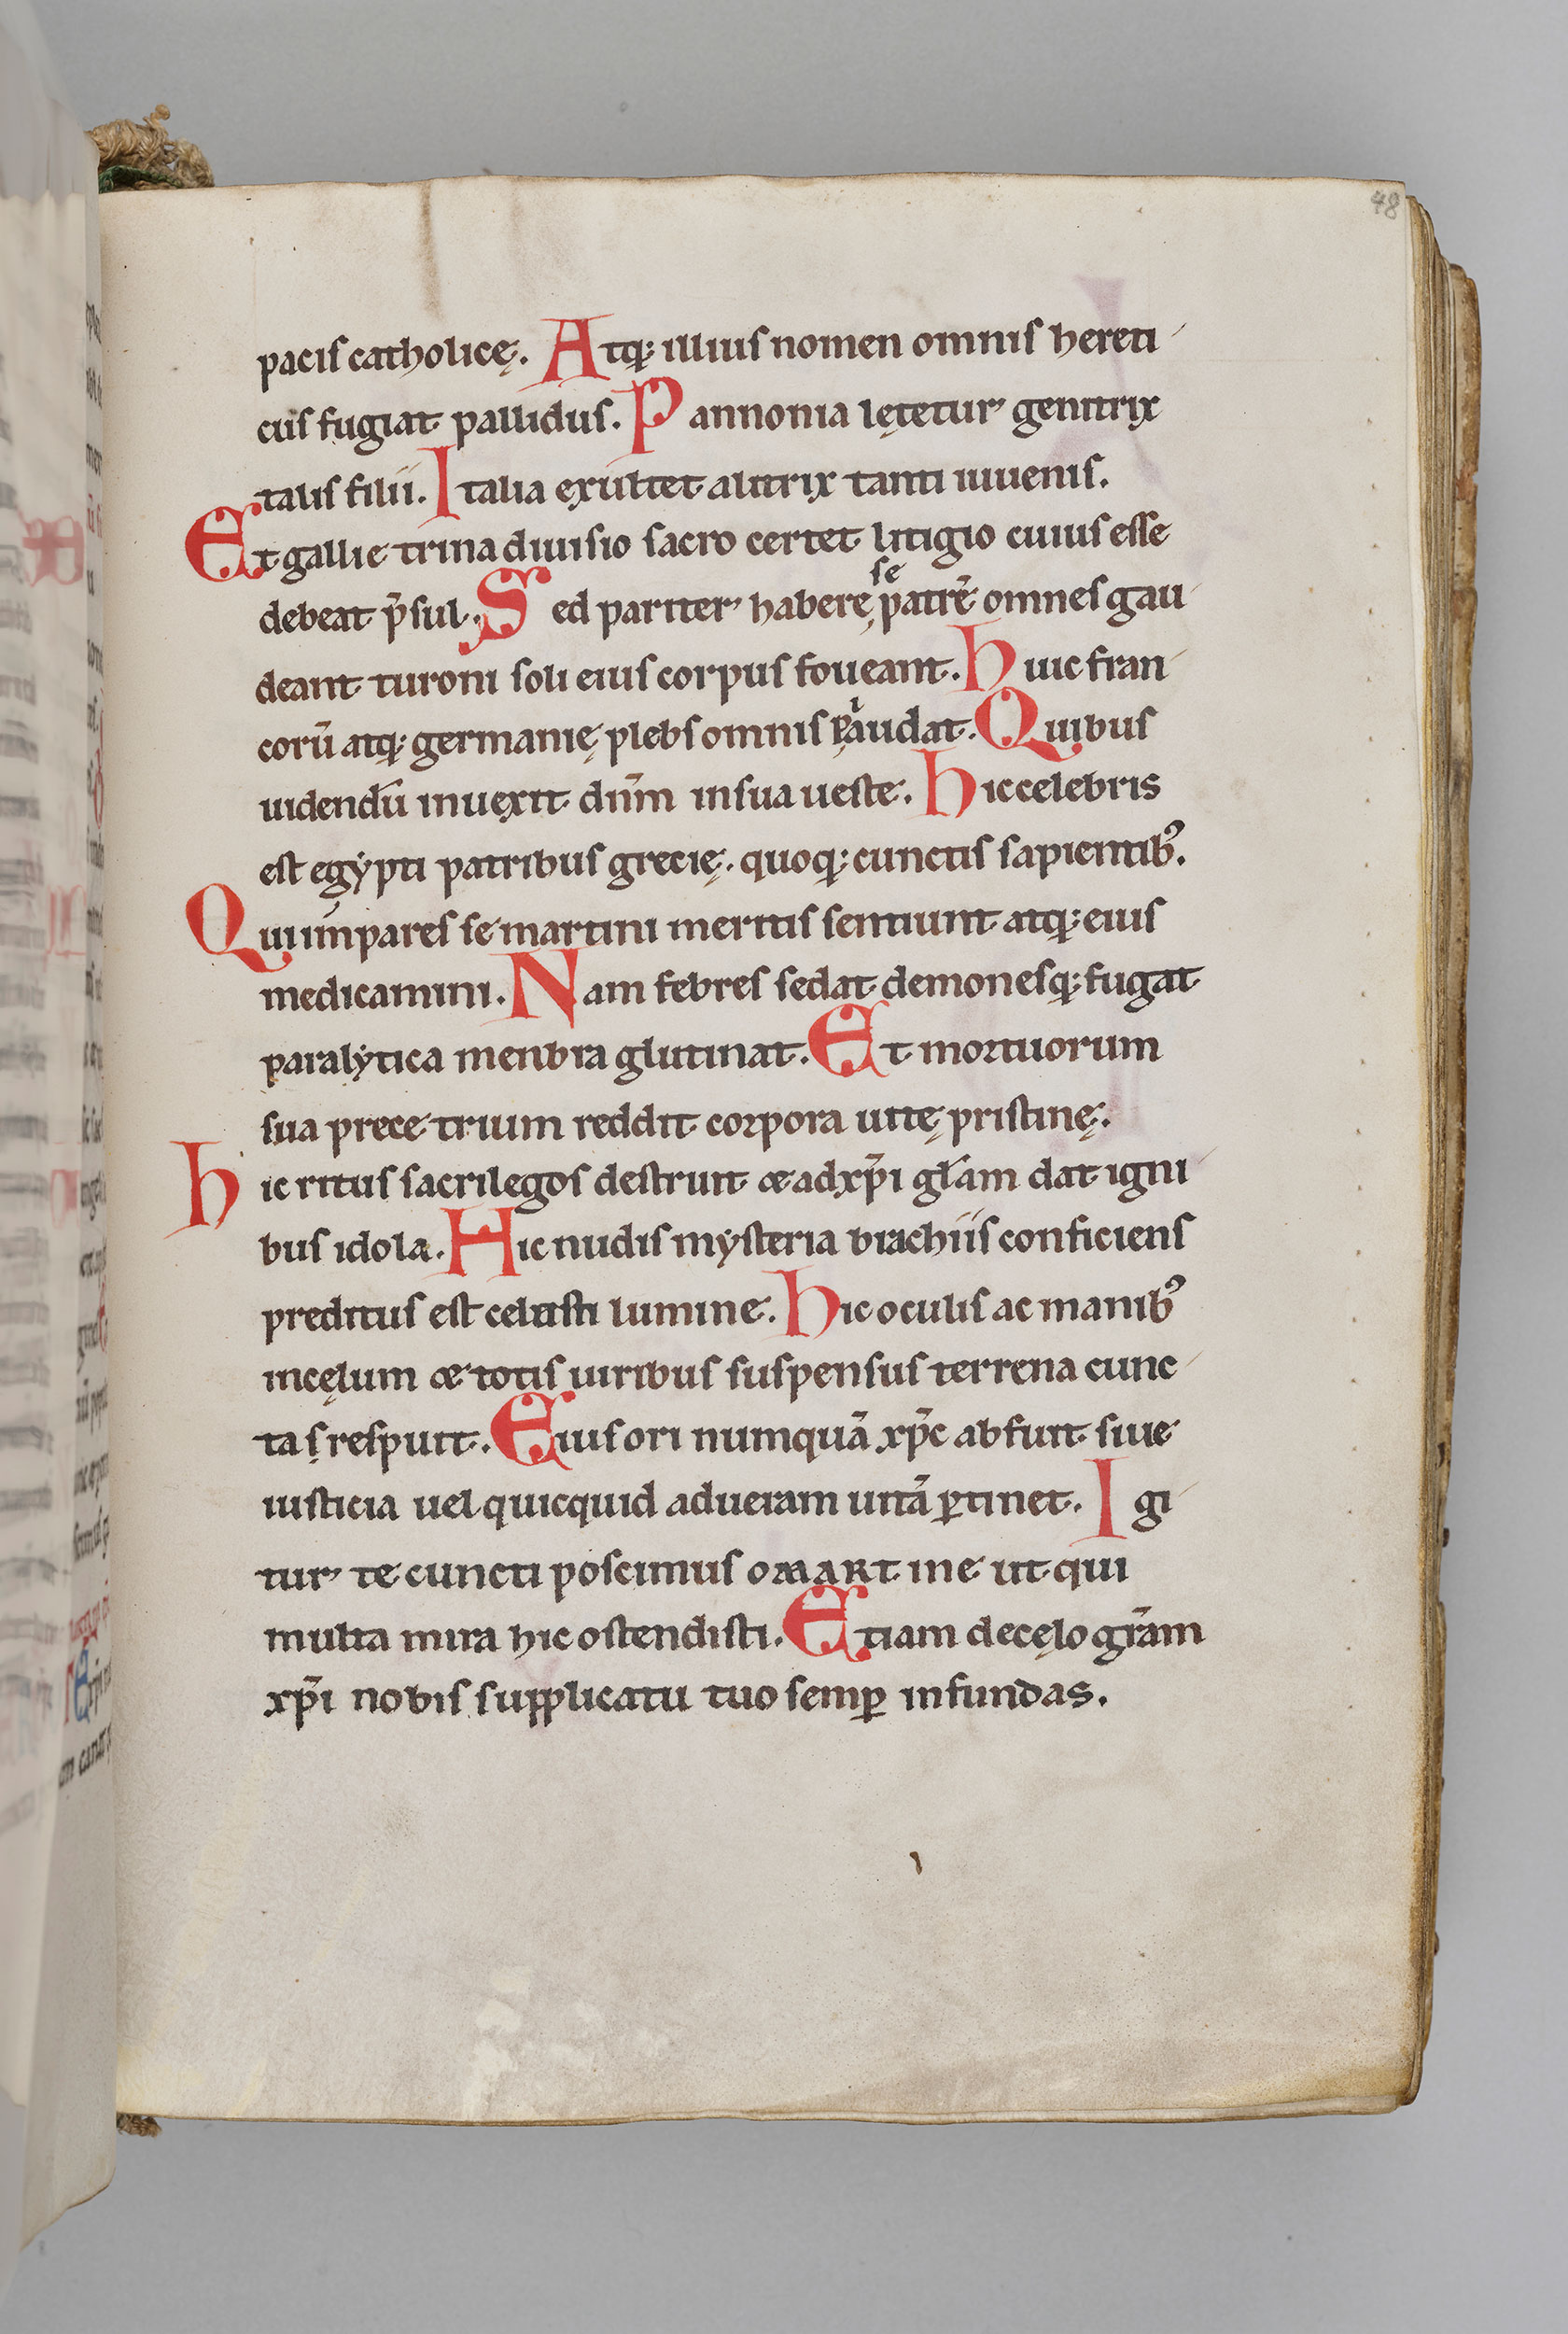 48
pacis catholicę. Atq; illius nomen omnis hereti
cus fugiat pallidus. Pannonia lętetur genitrix
talis filii. Italia exultet alitrix tanti iuuenis.
Et gallie trina diuisio sacro certet litigio cuius esse
debeat p̄sul. Sed pariter habere se patrē omnes gau
deant turoni soli eius corpus foueant. Huic fran
corū atq; germanię plebs omnis plaudat. Quibus
uidendū inuexit dn̄m in sua ueste. Hic celebris
est egẏpti patribus grecię. quoq; cunctis sapientib᾿.
Qui impares se martini meritis sentiunt atq; eius
medicamini. Nam febres sedat demonesq; fugat
paralẏtica menbra glutinat. Et mortuorum
sua prece trium reddit corpora uitę pristinę.
Hic ritus sacrilegos destruit & ad xp̄i gl̄am dat igni
bus idola. Hic nudis mẏsteria brachiis conficiens
preditus est celesti lumine. Hic oculis ac manib᾿
in cęlum & totis uiribus suspensus terrena cunc
ta respuit. Eius ori numquā xp̄c abfuit siue
iusticia uel quicquid ad ueram uitā ꝑtinet. Igi
tur te cuncti poscimus o MARTine ut qui
multa mira hic ostendisti. Etiam de cęlo gr̄am
xp̄i nobis supplicatu tuo semꝑ infundas.